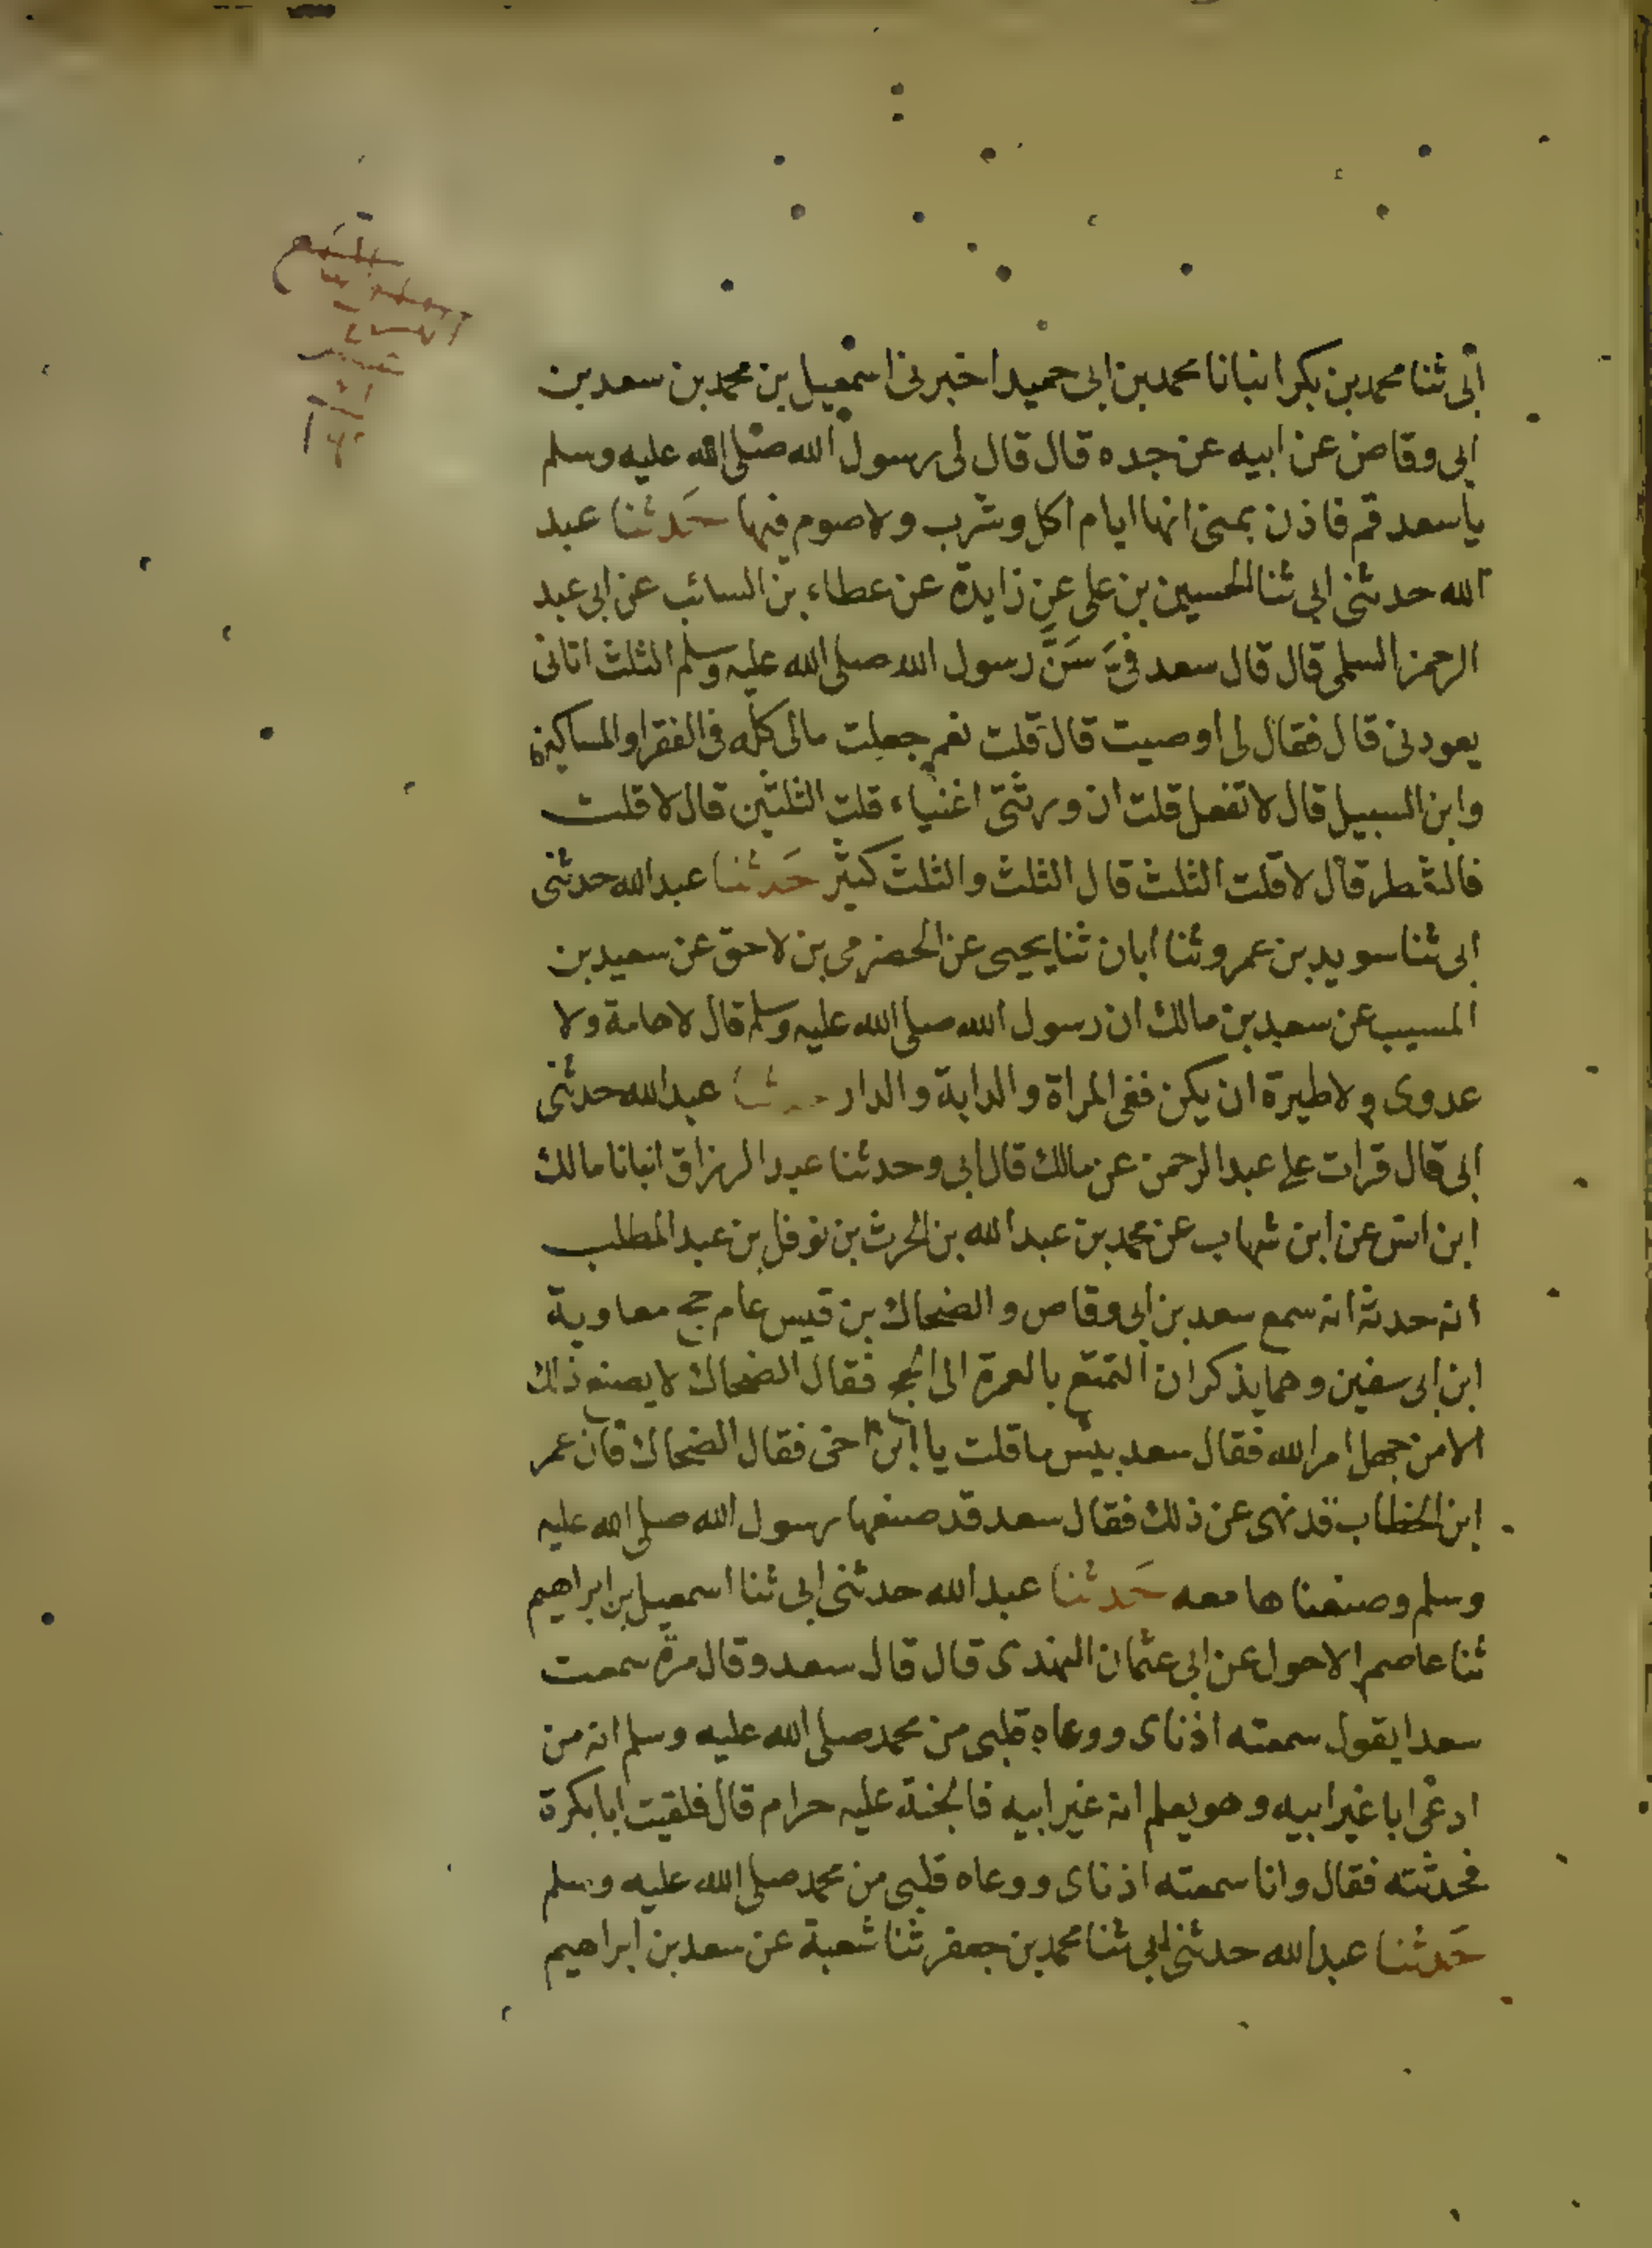 ابى ثنا محمد بن بكر انبانا محمد بن ابى حميد اخبرنى اسمعيل بن محمد بن سعد بن
ابى وقاص عن ابيه عن جده قال قال لى رسول الله صلى الله عليه وسلم
يا سعد قم فاذن بمنى انها ايام اكل وشرب ولا صوم فيها حدثنا عبد
الله حدثنى ابى ثنا الحسين بن على عن زايدة عن عطاء بن السائب عن ابى عبد
الرحمن السلمى قال قال سعد فىَّ سَنَّ رسول الله صلى الله عليه وسلم الثلث اتانى
يعودنى قال فقال لى اوصيت قال قلت نعم جعلت مالى كله فى الفقرا والمساكين
وابن السبيل قال لا تفعل قلت ان ورثتى اغنياء قلت الثلثين قال لا قلت
فالشطر قال لا قلت الثلث قال الثلث والثلث كثير حدثنا عبد الله حدثنى
ابى ثنا سويد بن عمرو ثنا ابان ثنا يحيى عن الحضرمى بن لاحق عن سعيد بن
المسيب عن سعد بن مالك ان رسول الله صلى الله عليه وسلم قال لا هامة ولا
عدوى ولا طيرة ان يكن ففى المراة والدابة والدار حدثنا عبد الله حدثنى
ابى قال قرات على عبد الرحمن عن مالك قال ابى وحدثنا عبد الرزاق انبانا مالك
ابن انس عن ابن شهاب عن محمد بن عبد الله بن الحرث بن نوفل بن عبد المطلب
انه حدثه انه سمع سعد بن ابى وقاص والضحاك بن قيس عام حج معاوية
ابن ابى سفين وهما يذكران التمتع بالعمرة الى الحج فقال الضحاك لا يصنع ذلك
الا من جهل امر الله فقال سعد بيس ما قلت يا ابن اخى فقال الضحاك فان عمر
ابن الخطاب قد نهى عن ذلك فقال سعد قد صنعها رسول الله صلى الله عليه
وسلم وصنعناها معه حدثنا عبد الله حدثنى ابى ثنا اسمعيل بن ابراهيم
ثنا عاصم الاحول عن ابى عثمان النهدى قال قال سعد وقال مرة سمعت
سعدا يقول سمعته اذناى ووعاه قلبى من محمد صلى الله عليه وسلم انه من
ادعى ابا غير ابيه وهو يعلم انه غير ابيه فالجنة عليه حرام قال فلقيت ابا بكرة
فحدثته فقال وانا سمعته اذناى ووعاه قلبى من محمد صلى الله عليه وسلم
حدثنا عبد الله حدثنى ابى ثنا محمد بن جعفر ثنا شعبة عن سعد بن ابراهيم